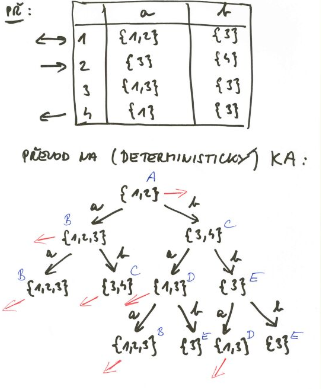 PŘ:
a b
↔ 1 {1,2} {3}
→ 2 {3} {4}
3 {1,3} {3}
← 4 {1} {3}
PŘEVOD NA (DETERMINISTICKÝ) KA:
A
{1,2}
a b
B C
{1,2,3} {3,4}
a b a b
B C D E
{1,2,3} {3,4} {1,3} {3}
a b a b
{1,2,3} B {3} E {1,3} D {3} E